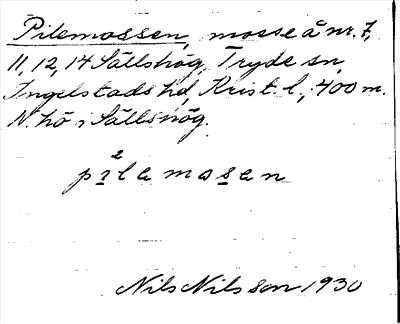 Pilemossen, mosse å nr. 7,
11, 12, 14 Sällshög, Tryde sn,
Ingelstads hd, Krist. l., 400 m.
N. hö i Sällshög.
pı̣²lemosen
Nils Nilsson 1930